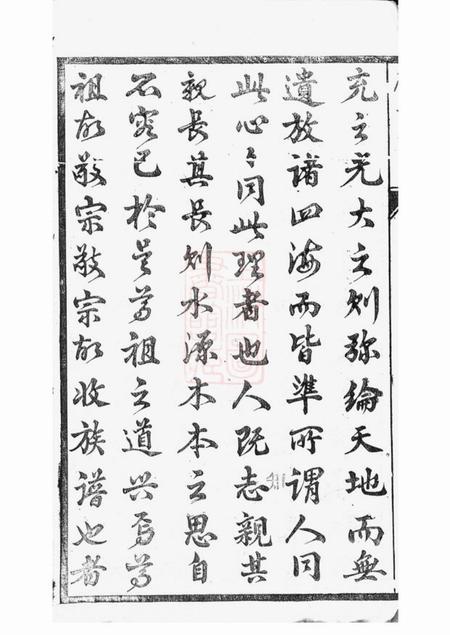 充之光大之則彌綸天地而無
遺放諸四海而皆準所謂人同
此心〻同此理者也人既志親其
親長其長則水源木本之思自
不容已於是尊祖之道興焉尊
祖故敬宗敬宗故收族譜也者